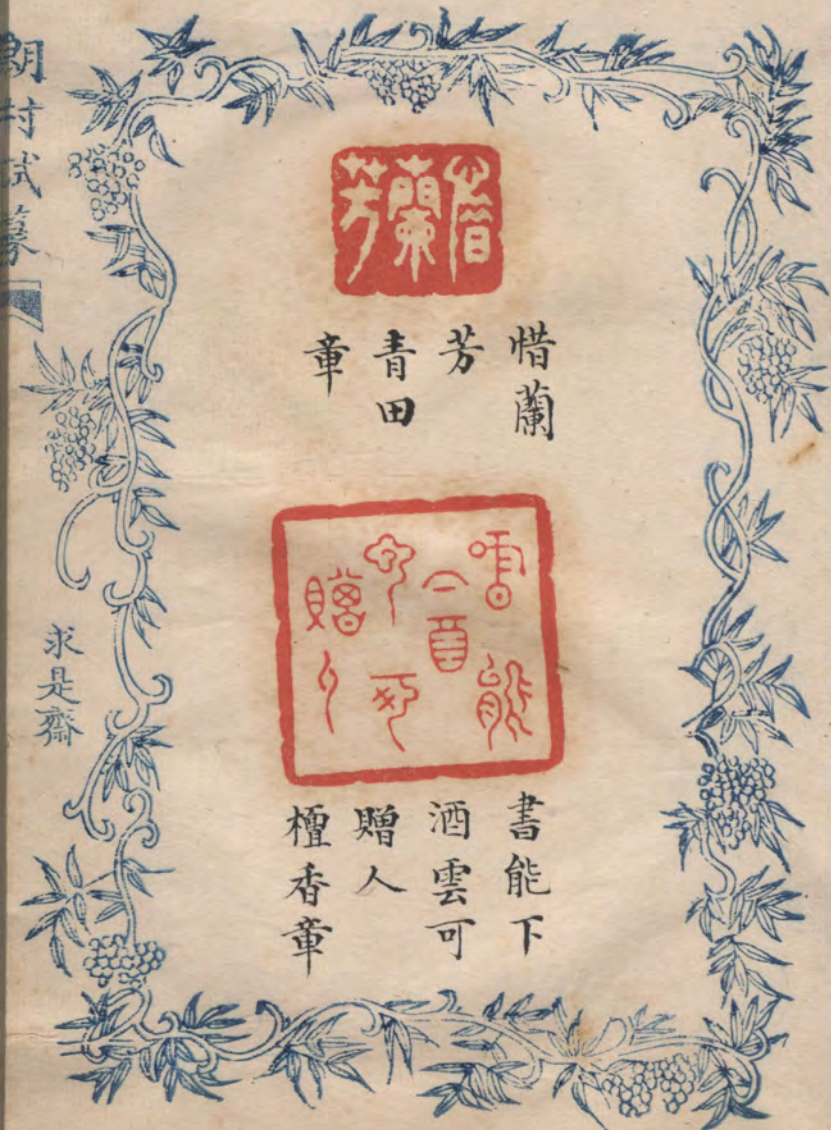 惜蘭芳
惜蘭
芳
青田
章
書能下酒雲可贈人
書能下
酒雲可
贈人
檀香章
求是齋